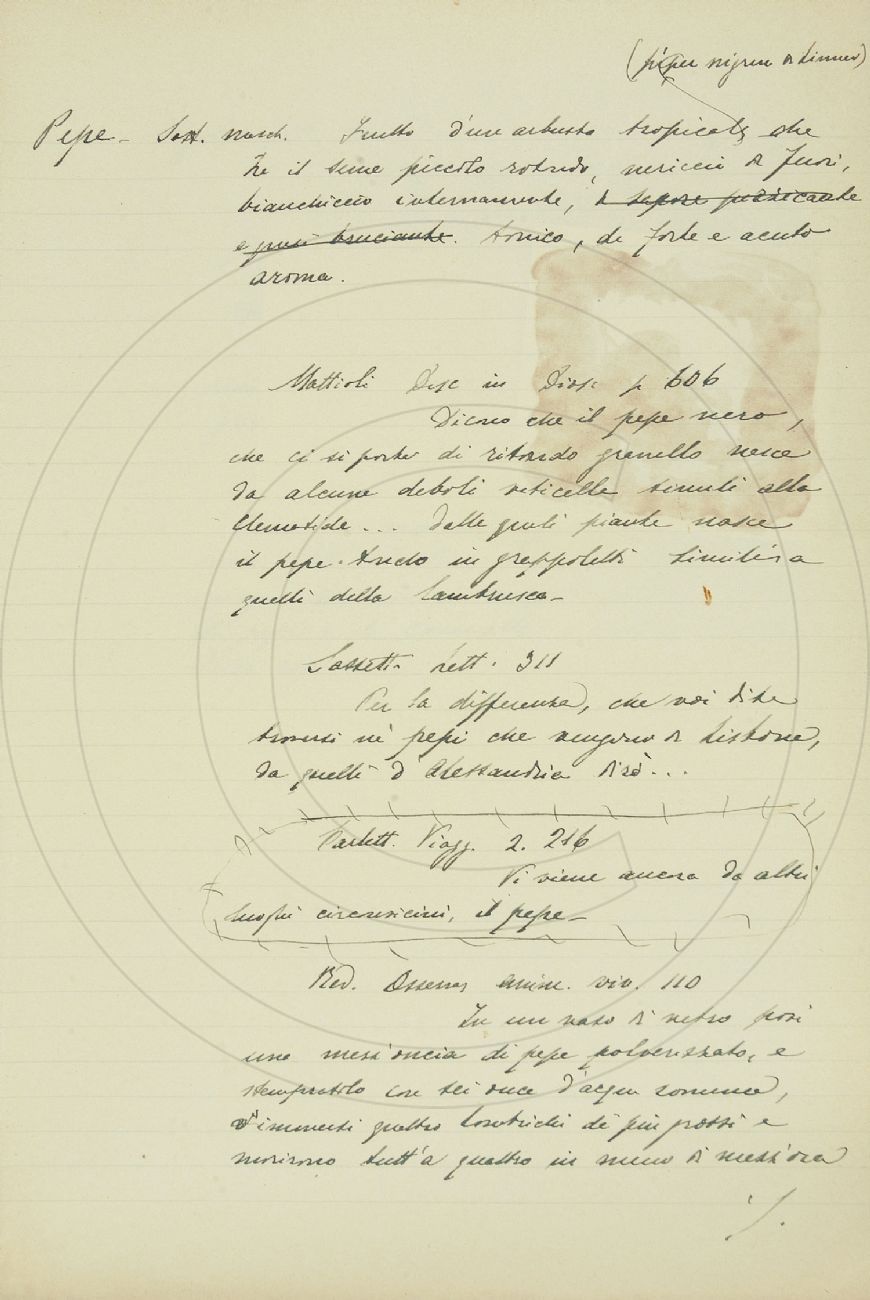 (piper nigrum di Linneo)
Pepe - Sost. masch. Frutto d'un arbusto tropicale che
ha il seme piccolo rotondo, nericcio di fuori,
bianchiccio internamente, di sapore pizzicante
e quasi bruciante. tonico, di forte e acuto
aroma.
Mattioli Disc in Diosc p 606
Dicono che il pepe nero,
che ci si porta di ritondo granello nasce
da alcune deboli viticelle simili alla
Clematide... dalle quali piante nasce
il pepe tondo in grappoletti simili a
quelli della lambrusca -
Sassetti lett. 311
Per la differenza, che voi dite
trovarsi ne' pepi che vengono di Lisbona,
da quelli d'Alessandria dirò...
Viagg. 2. 216
Vi viene ancora da altri
luoghi circonvicini, il pepe -
Red. Osservaz anim. viv. 110
In un vaso di vetro posi
una mezz'oncia di pepe polverizzato, e
stempratolo con sei once d'acqua comune,
v'immersi quattro lombrichi de' più grossi e
morirono tutt'a quattro in meno di mezz'ora
./.